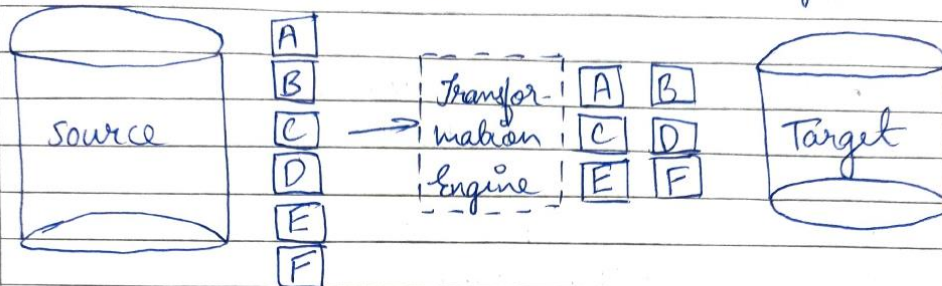 A
B
Source
C
D
E
F
Transfor-
mation
Engine
A B
C D
E F
Target